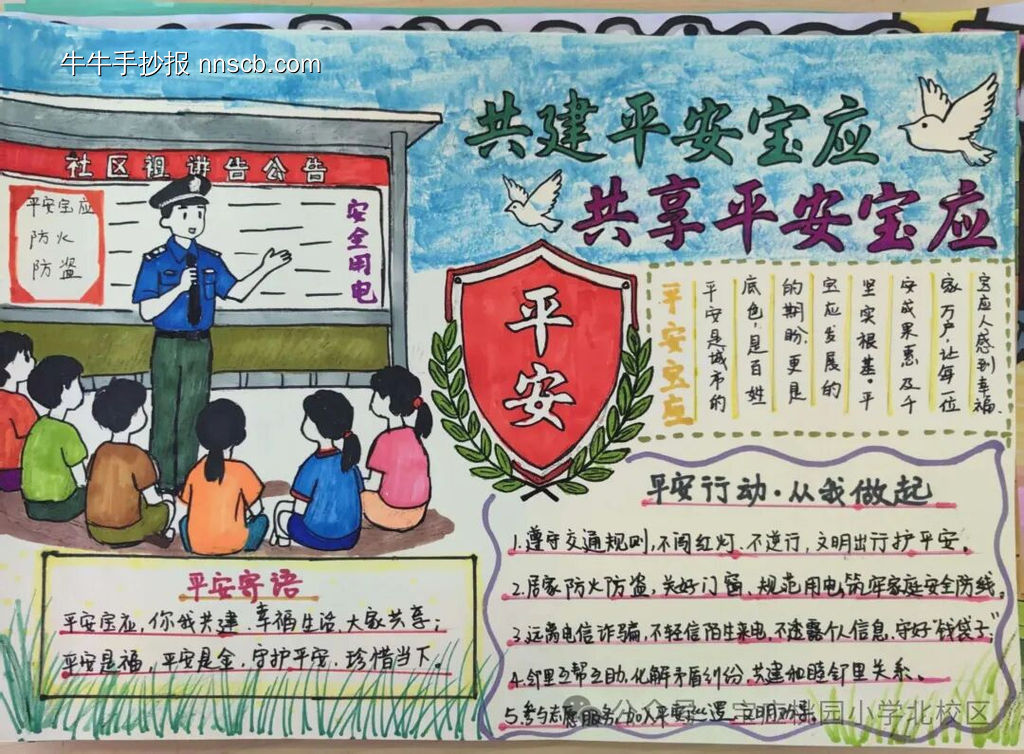 牛牛手抄报 nnscb.com
共建平安宝应
共享平安宝应
社区祖进告公告
平安宝应
防火
防盗
安全用电
平安
平安宝应
平安是城市的
底色,是百姓
的期盼,更是
宝应发展的
坚实根基。平
安成果惠及千
家万户,让每一位
宝应人感到幸福.
平安行动·从我做起
1.遵守交通规则,不闯红灯、不逆行,文明出行护平安。
2.居家防火防盗,关好门窗、规范用电,筑牢家庭安全防线。
3.远离电信诈骗,不轻信陌生来电,不透露个人信息,守好"钱袋子";
4.邻里互帮互助,化解矛盾纠纷,共建和睦邻里关系。
5.参与志愿服务,加入平安巡逻、文明劝导
公众号 桃园小学北校区
平安寄语
平安宝应,你我共建、幸福生活、大家共享;
平安是福,平安是金,守护平安、珍惜当下。